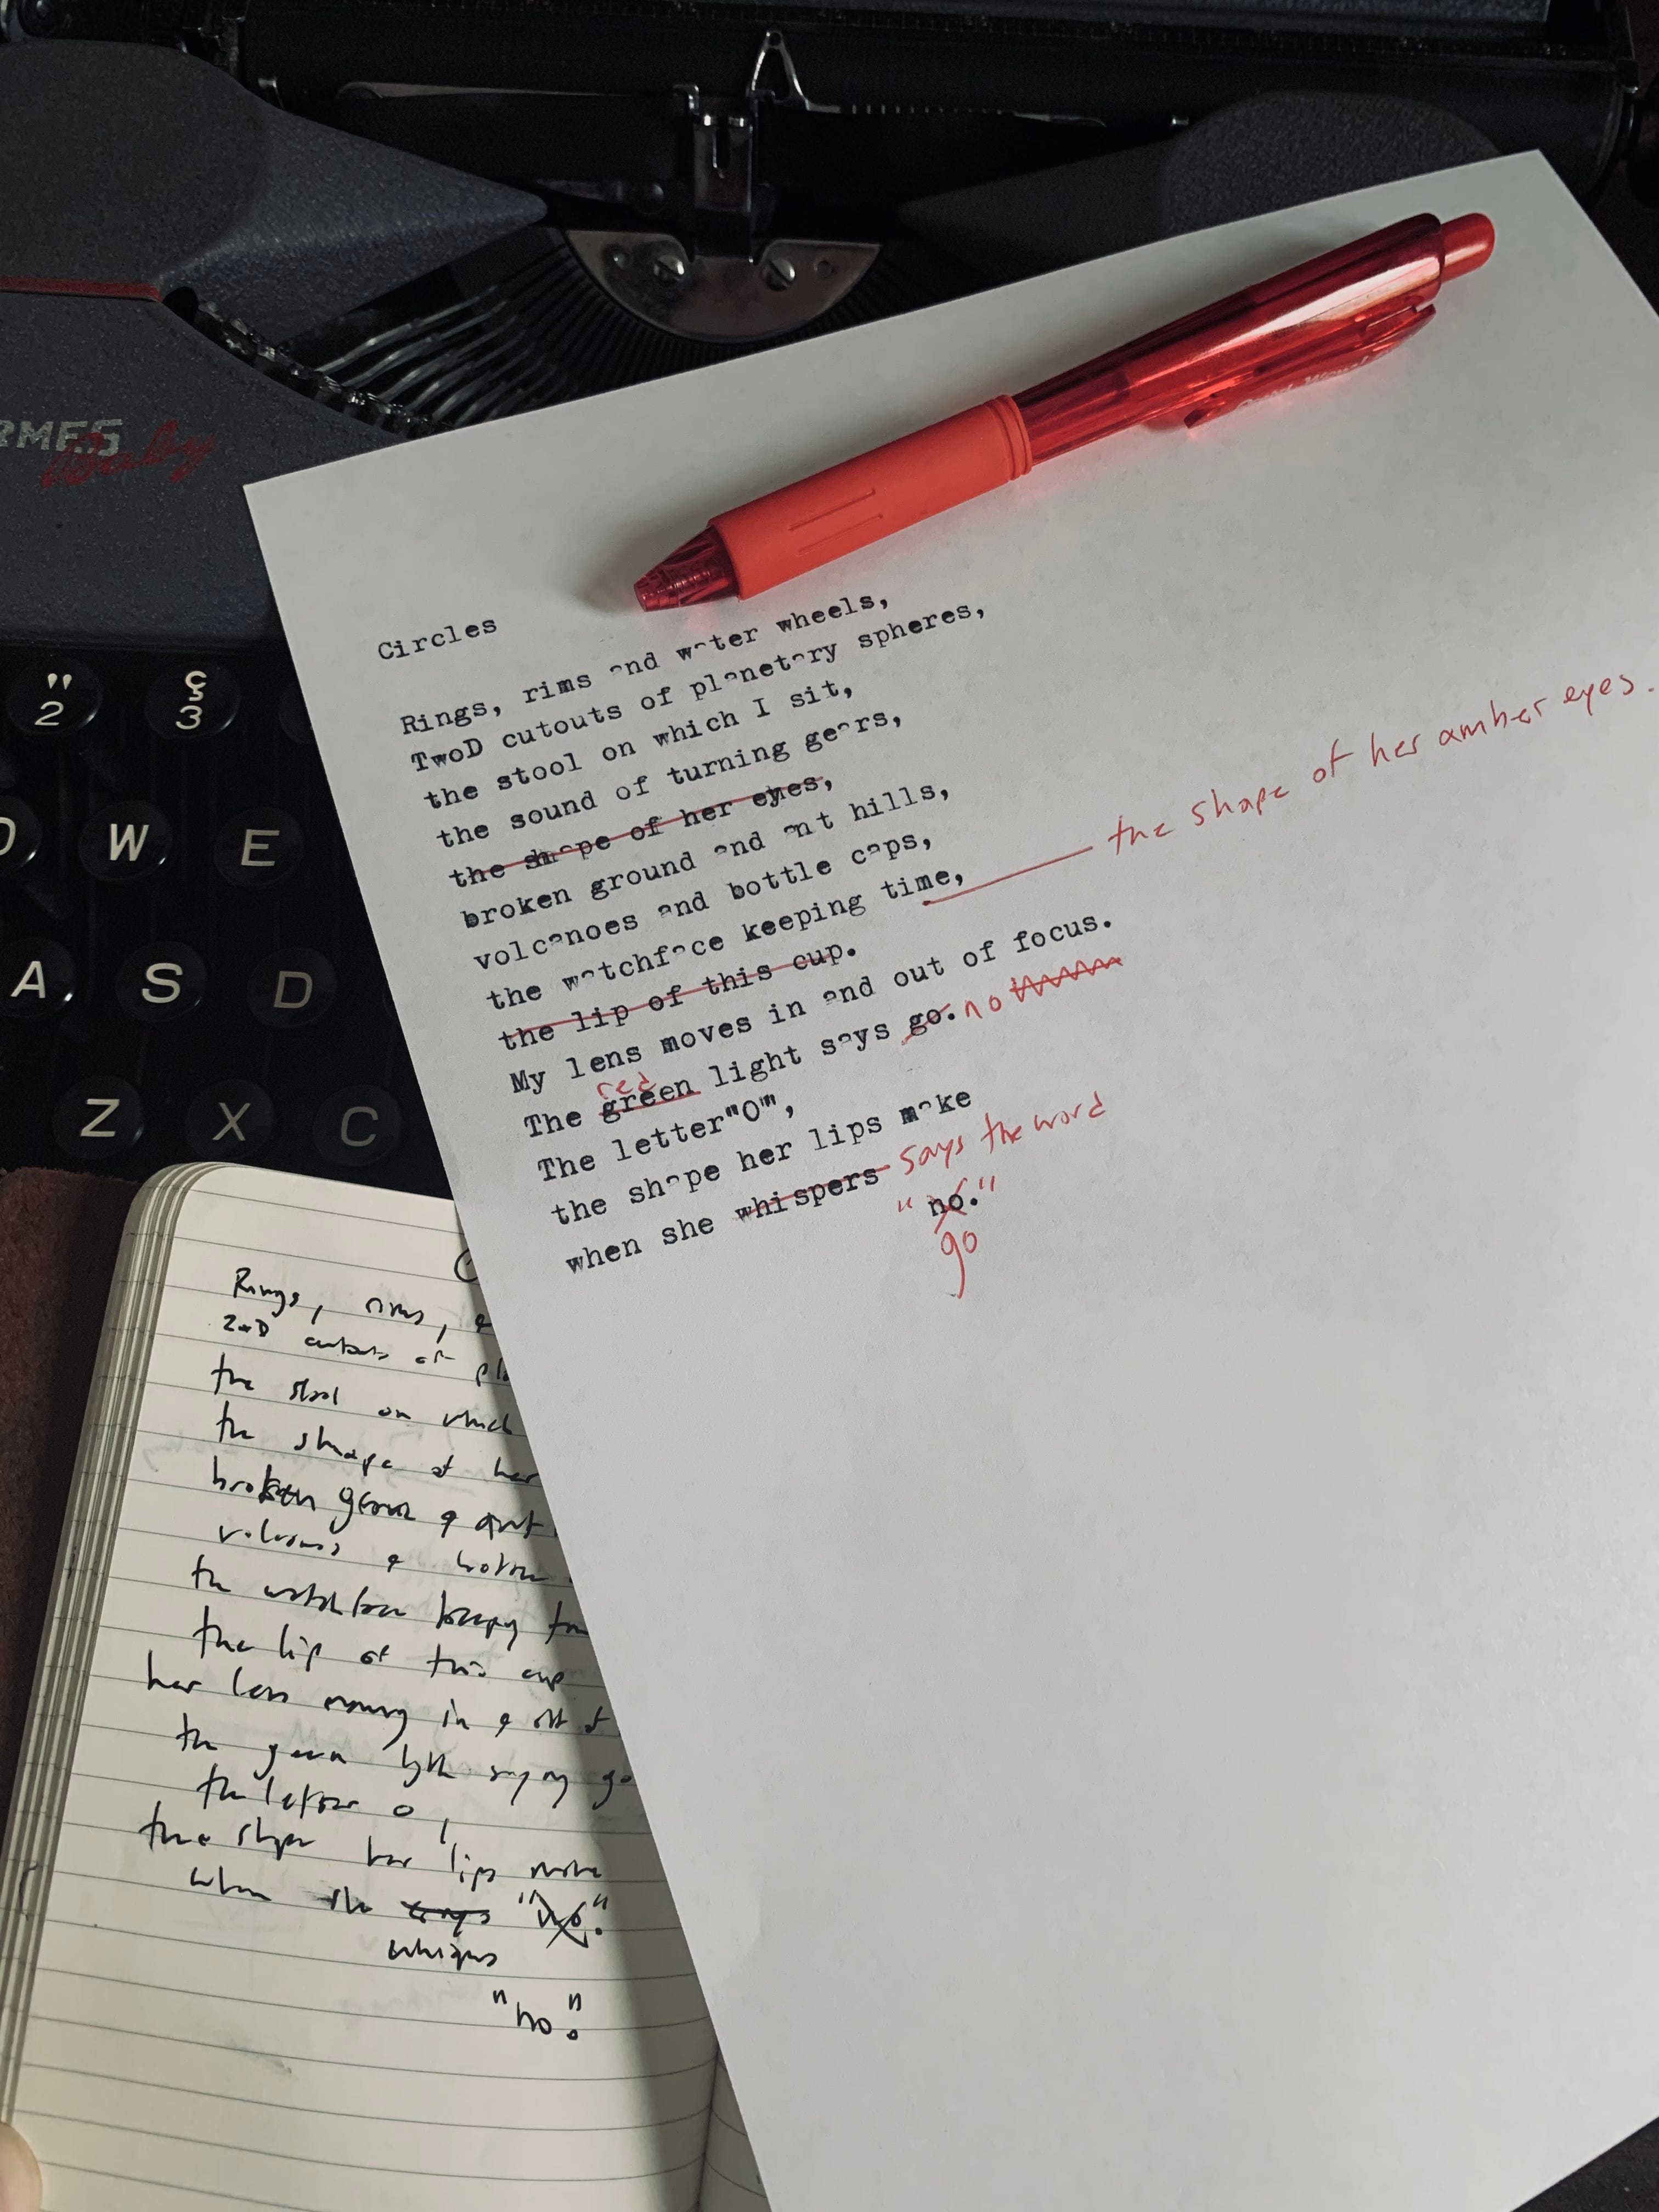 RMES
Baby
" 2
ç 3
W E
A S D
Z X C
Circles
Rings, rims and water wheels,
TwoD cutouts of planetary spheres,
the stool on which I sit,
the sound of turning gears,
the shape of her eyes,
broken ground and ant hills,
volcanoes and bottle caps,
the watchface keeping time, the shape of her amber eyes.
the lip of this cup.
My lens moves in and out of focus.
The green red light says go. no
The letter"O",
the shape her lips make
when she whispers says the word
"no."
go
Rings, rims, &
2D cutouts of pla
the stool on which
the shape of her
broken ground & ant
volcanoes & bottle
the watchface keeping
the lip of this cup
her lens moving in & out of
the green light saying go
the letter O,
the shape her lips make
when she says "no."
whispers
"no."